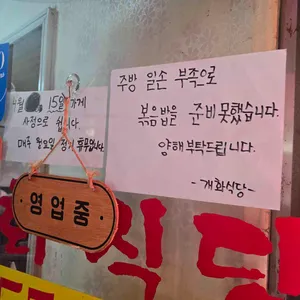 4월 15일 가게
사정으로 쉽니다.
매주 월요일 정기 휴무입니다
주방 일손 부족으로
볶음밥을 준비못했습니다.
양해부탁드립니다.
-개화식당-
영업중
식당